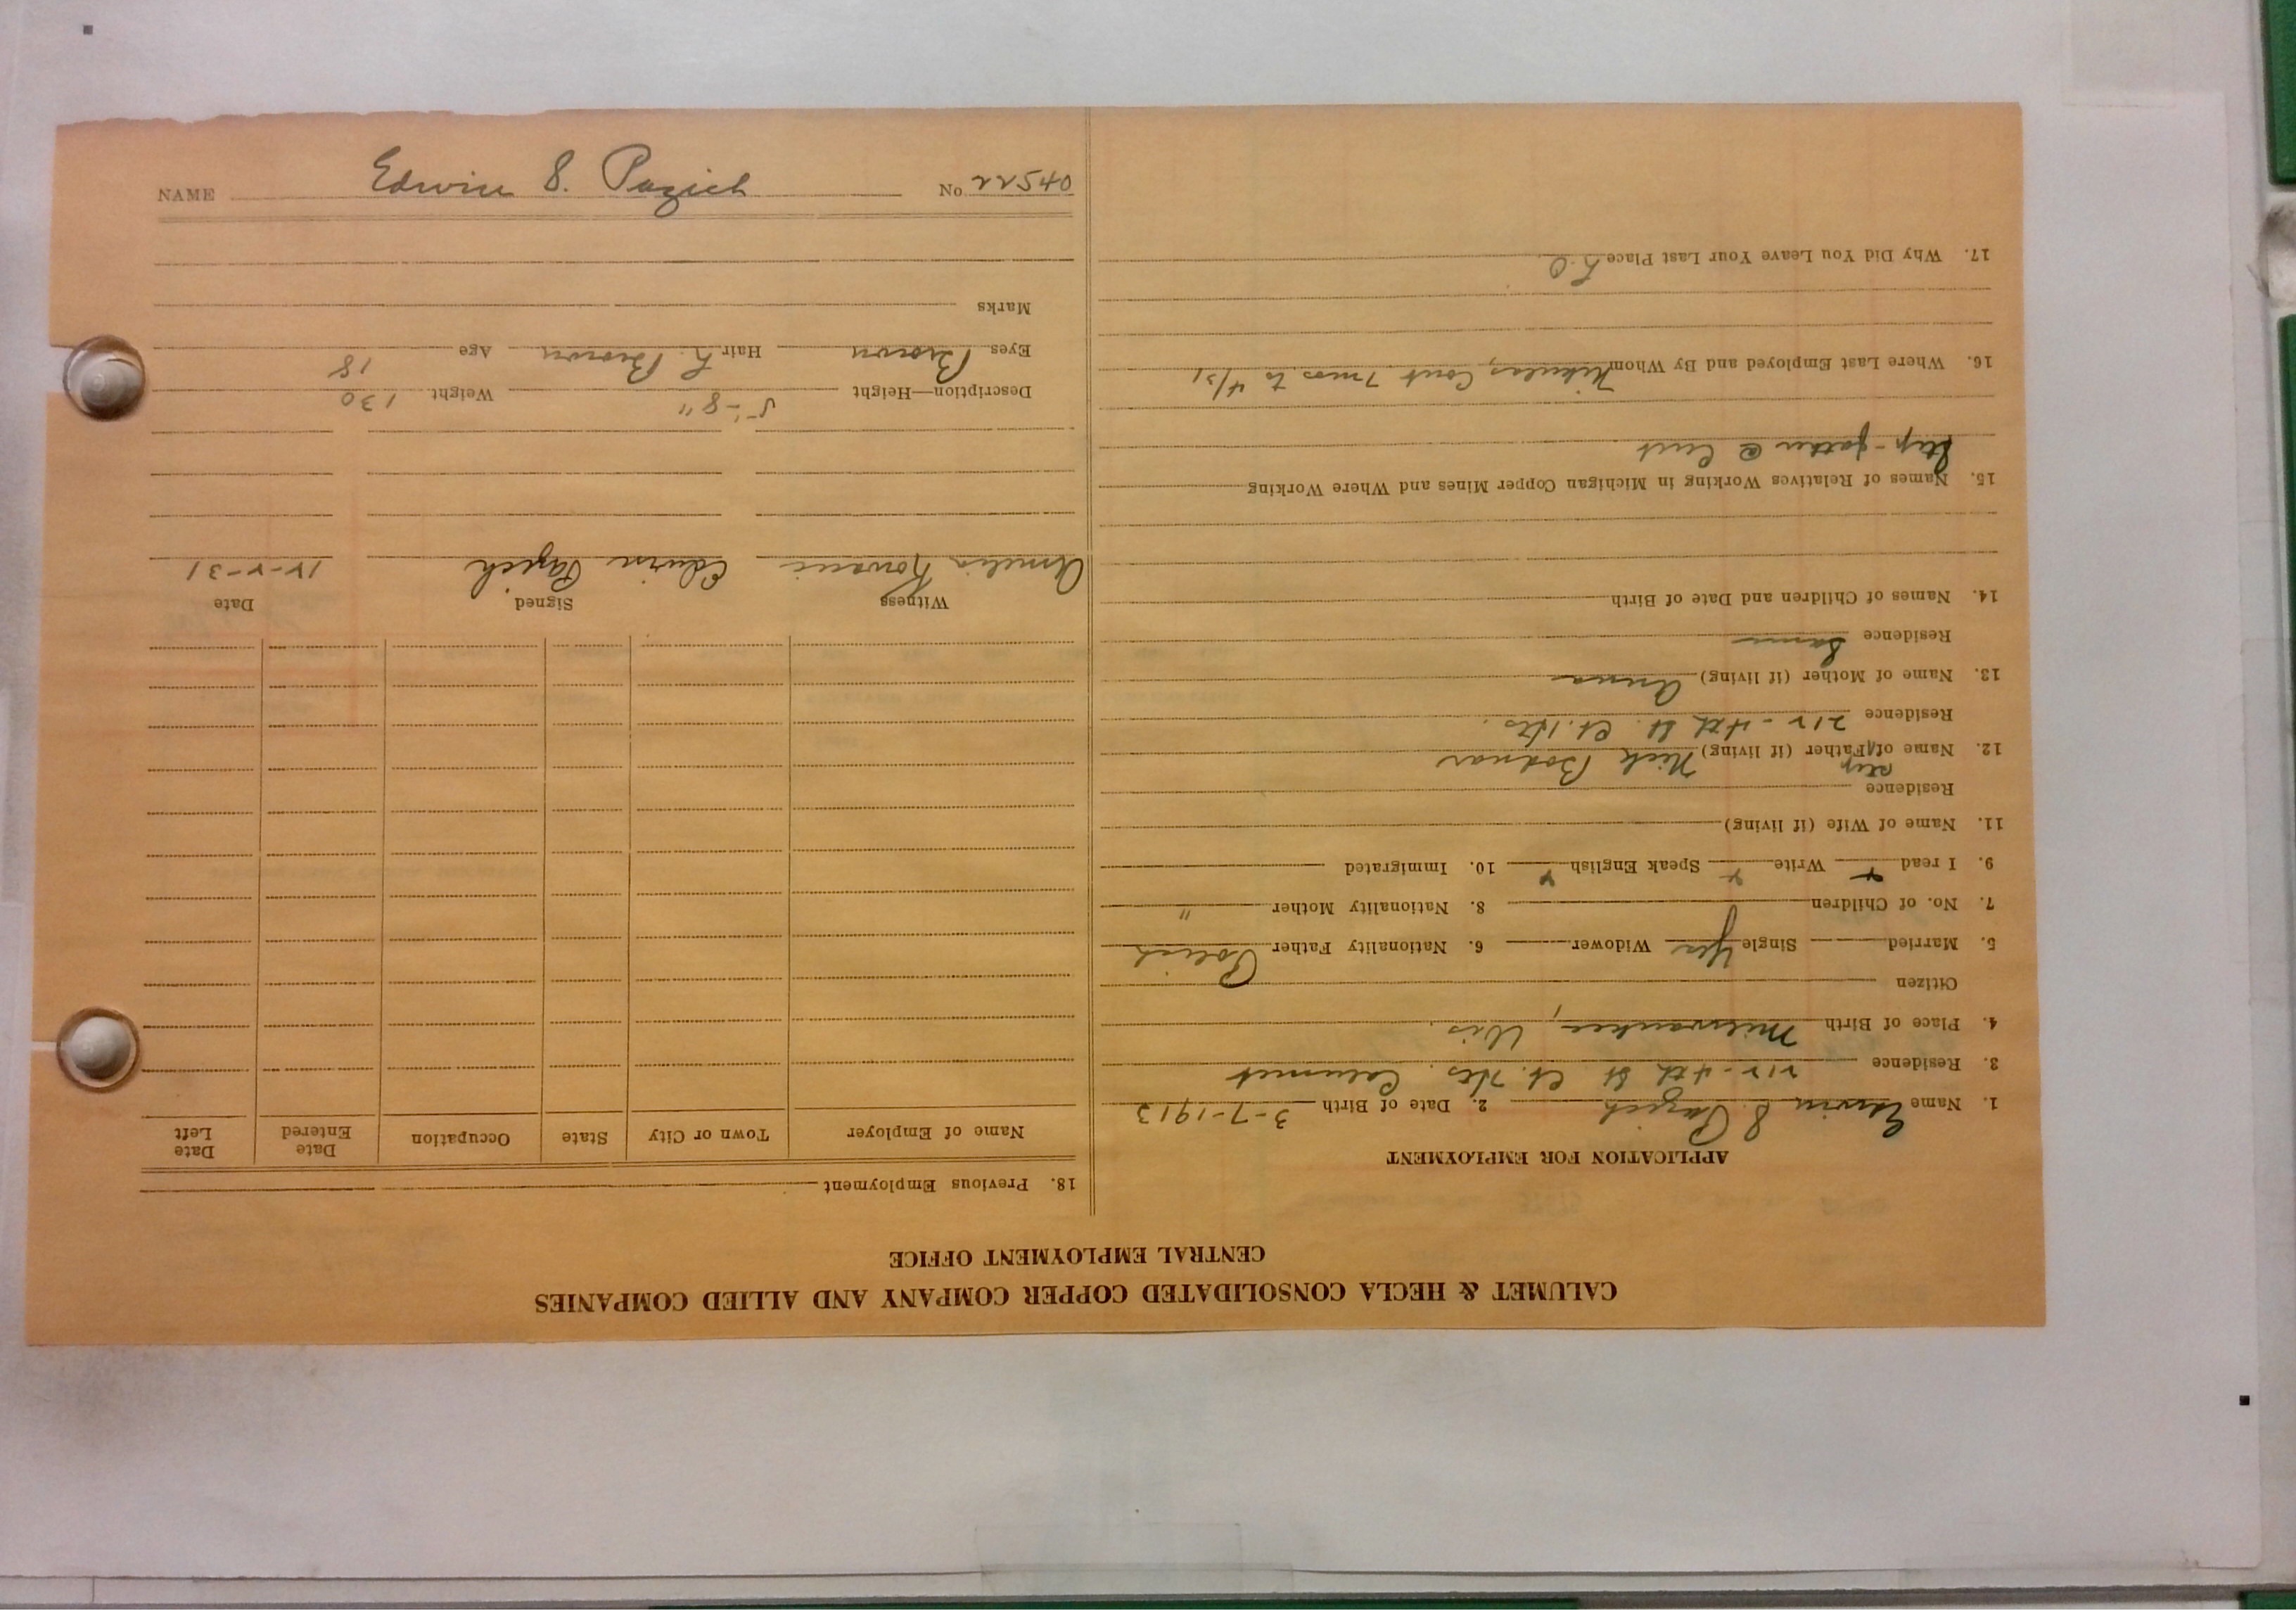 NAME Edwin S. Pazich No 22540
CALUMET & HECLA CONSOLIDATED COPPER COMPANY AND ALLIED COMPANIES
CENTRAL EMPLOYMENT OFFICE
APPLICATION FOR EMPLOYMENT
1. Name Edwin S. Pazich 2. Date of Birth 3-7-1913
3. Residence 212-4th St. Ct. Hts. Calumet
4. Place of Birth Milwaukee, Wis.
Citizen
5. Married Single Yes Widower 6. Nationality Father Polish
7. No. of Children 8. Nationality Mother "
9. I read Y Write Y Speak English Y 10. Immigrated
11. Name of Wife (if living)
Residence
12. Name of step Father (if living) Nick Bodnar
Residence 212-4th St. Ct. Hts.
13. Name of Mother (if living) Anna
Residence Same
14. Names of Children and Date of Birth
15. Names of Relatives Working in Michigan Copper Mines and Where Working
Step-father @
16. Where Last Employed and By Whom Cont 7 mos to 4/31
17. Why Did You Leave Your Last Place L.O.
18. Previous Employment
Name of Employer Town or City State Occupation Date Entered Date Left
Witness Signed Date
Amelia Edwin Pazich 12-2-31
Description—Height 5'-8" Weight 130
Eyes Brown Hair L. Brown Age 18
Marks